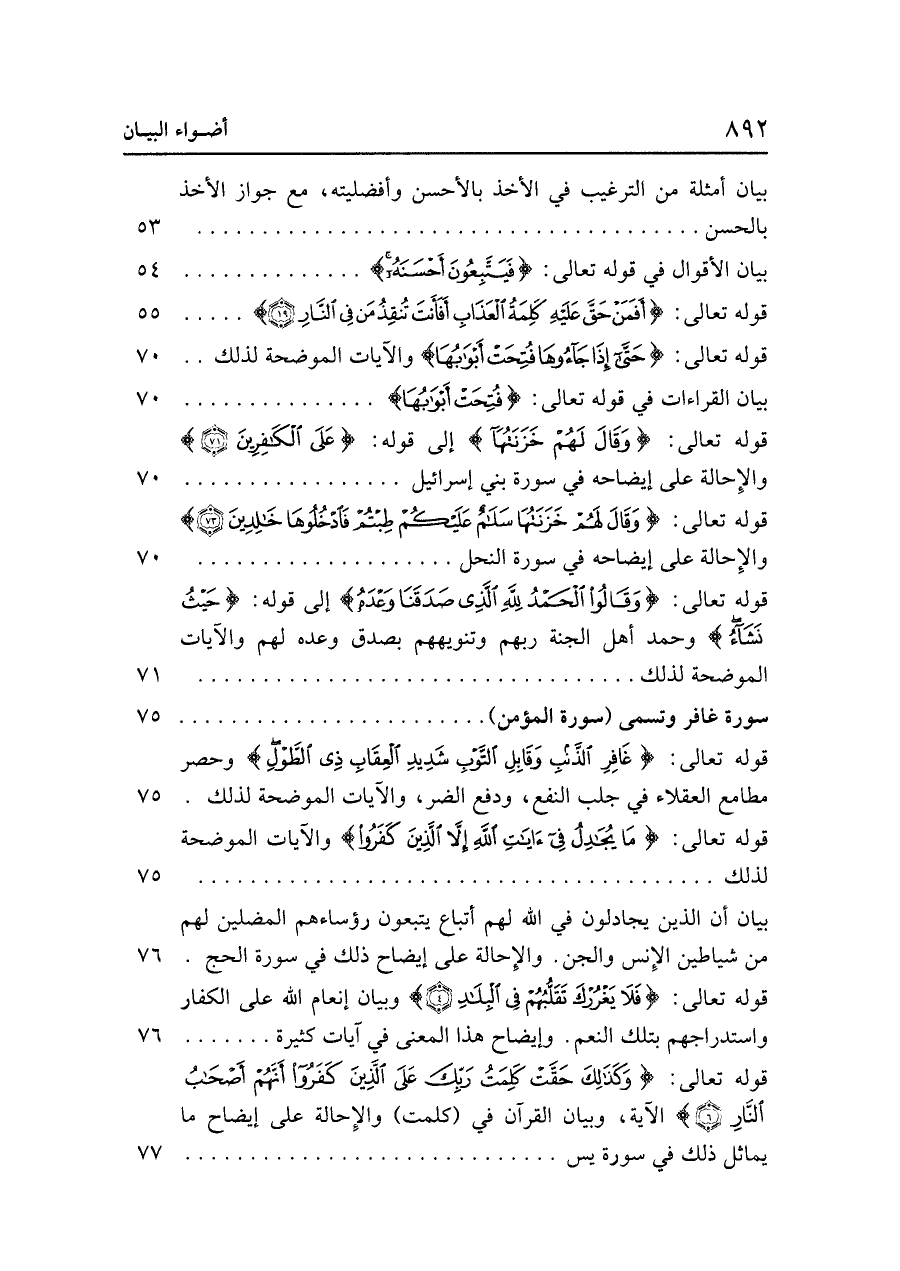 ٨٩٢ أضـواء البيـان
بيان أمثلة من الترغيب في الأخذ بالأحسن وأفضليته، مع جواز الأخذ
بالحسن . . . . . . . . . . . . . . . . . . . . . . . . . . . . . . . . . . . . . . . ٥٣
بيان الأقوال في قوله تعالى: ﴿فَيَتَّبِعُونَ أَحْسَنَهُۥٓۚ﴾ . . . . . . . . . . . . . . ٥٤
قوله تعالى: ﴿أَفَمَنْ حَقَّ عَلَيْهِ كَلِمَةُ ٱلْعَذَابِ أَفَأَنتَ تُنقِذُ مَن فِى ٱلنَّارِ ١٩﴾ . . . . . ٥٥
قوله تعالى: ﴿حَتَّىٰٓ إِذَا جَآءُوهَا فُتِحَتْ أَبْوَٰبُهَا﴾ والآيات الموضحة لذلك . . ٧٠
بيان القراءات في قوله تعالى: ﴿فُتِحَتْ أَبْوَٰبُهَا﴾ . . . . . . . . . . . . . . . ٧٠
قوله تعالى: ﴿وَقَالَ لَهُمْ خَزَنَتُهَآ﴾ إلى قوله: ﴿عَلَى ٱلْكَٰفِرِينَ ٧١﴾
والإحالة على إيضاحه في سورة بني إسرائيل . . . . . . . . . . . . . . . . . ٧٠
قوله تعالى: ﴿وَقَالَ لَهُمْ خَزَنَتُهَا سَلَٰمٌ عَلَيْكُمْ طِبْتُمْ فَٱدْخُلُوهَا خَٰلِدِينَ ٧٣﴾
والإحالة على إيضاحه في سورة النحل . . . . . . . . . . . . . . . . . . . . ٧٠
قوله تعالى: ﴿وَقَالُوا۟ ٱلْحَمْدُ لِلَّهِ ٱلَّذِى صَدَقَنَا وَعْدَهُۥ﴾ إلى قوله: ﴿حَيْثُ
نَشَآءُۖ﴾ وحمد أهل الجنة ربهم وتنويههم بصدق وعده لهم والآيات
الموضحة لذلك . . . . . . . . . . . . . . . . . . . . . . . . . . . . . . . . . . ٧١
سورة غافر وتسمى (سورة المؤمن) . . . . . . . . . . . . . . . . . . . . . . . . ٧٥
قوله تعالى: ﴿غَافِرِ ٱلذَّنۢبِ وَقَابِلِ ٱلتَّوْبِ شَدِيدِ ٱلْعِقَابِ ذِى ٱلطَّوْلِۖ﴾ وحصر
مطامع العقلاء في جلب النفع، ودفع الضر، والآيات الموضحة لذلك . ٧٥
قوله تعالى: ﴿مَا يُجَٰدِلُ فِىٓ ءَايَٰتِ ٱللَّهِ إِلَّا ٱلَّذِينَ كَفَرُوا۟﴾ والآيات الموضحة
لذلك . . . . . . . . . . . . . . . . . . . . . . . . . . . . . . . . . . . . . . . . ٧٥
بيان أن الذين يجادلون في الله لهم أتباع يتبعون رؤساءهم المضلين لهم
من شياطين الإنس والجن. والإحالة على إيضاح ذلك في سورة الحج . ٧٦
قوله تعالى: ﴿فَلَا يَغْرُرْكَ تَقَلُّبُهُمْ فِى ٱلْبِلَٰدِ ٤﴾ وبيان إنعام الله على الكفار
واستدراجهم بتلك النعم. وإيضاح هذا المعنى في آيات كثيرة . . . . . . . ٧٦
قوله تعالى: ﴿وَكَذَٰلِكَ حَقَّتْ كَلِمَتُ رَبِّكَ عَلَى ٱلَّذِينَ كَفَرُوٓا۟ أَنَّهُمْ أَصْحَٰبُ
ٱلنَّارِ ٦﴾ الآية، وبيان القرآن في (كلمت) والإحالة على إيضاح ما
يماثل ذلك في سورة يس . . . . . . . . . . . . . . . . . . . . . . . . . . . . . ٧٧